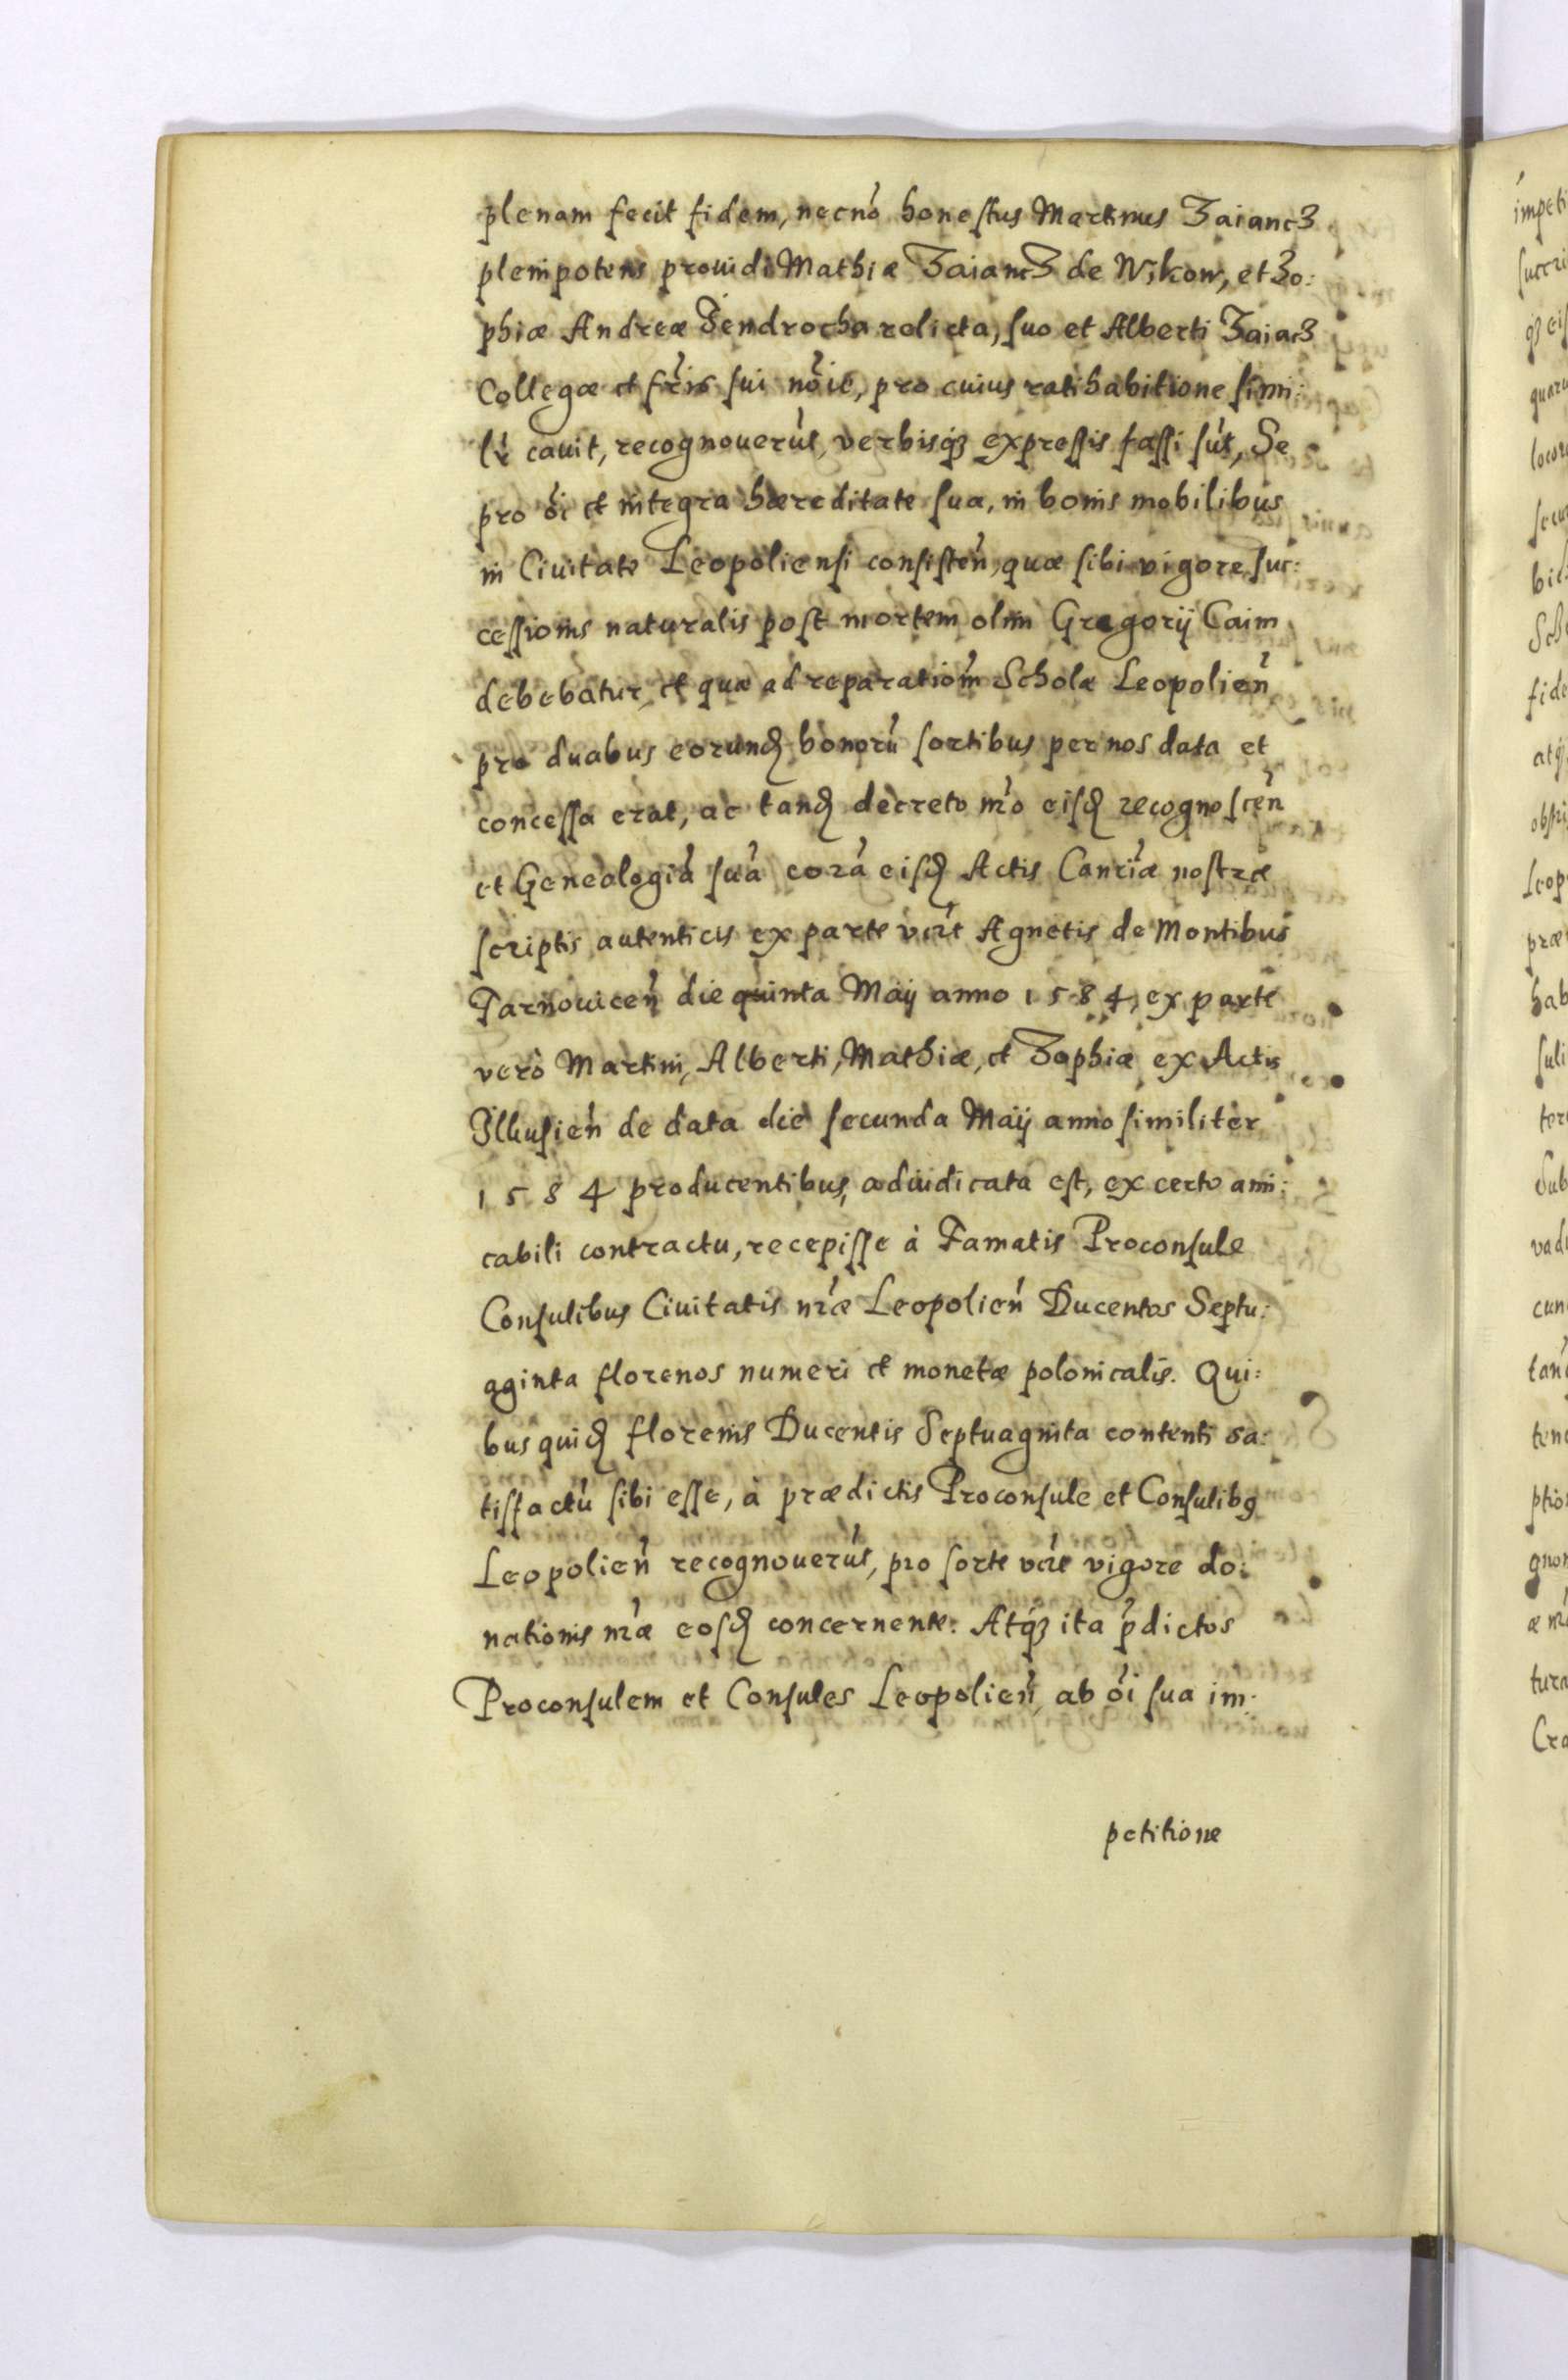 plenam fecit fidem, necnō honestus Martinus Zaiancz
plenipotens prouidi Mathiæ Zaiancz de Wikow, et Zo:
phiæ Andreæ Jendrocha relicta, suo et Alberti Zaiacz
Collegæ et fr̄is sui nōie, pro cuius ratihabitione simi:
lr̄ cauit, recognouerūt, verbisq̨ expressis fassi sūt, Se
pro ōi et integra hæreditate sua, in bonis mobilibus
in Ciuitate Leopoliensi consisten̄, quæ sibi vigore suc:
cessionis naturalis post mortem olim Gregorij Caim
debebatur, et quæ ad reparatiōm Scholæ Leopolien̄
pro duabus eorund̨ bonorū sortibus per nos data et
concessa erat, ac tand̨ decreto nr̄o eisd̨ recognoscen̄
et Genealogiā suā corā eisd̨ Actis Canc̄iæ nostræ
scriptis autenticis ex parte vnīꝰ Agnetis de Montibus
Tarnouicen̄ die quinta Maij anno 1584, ex parte
verò Martini, Alberti, Mathiæ, et Zophiæ ex Actis
Ilkusien̄ de data die secunda Maij anno similiter
1584 producentibus, adiudicata est, ex certo ami:
cabili contractu, recepisse à Famatis Proconsule
Consulibus Ciuitatis nr̄æ Leopolien̄ Ducentos Septu:
aginta florenos numeri et monetæ polonicalis. Qui:
bus quid̨ florenis Ducentis Septuaginta contenti sa:
tisfactū sibi esse, à prædictis Proconsule et Consulibꝰ
Leopolien̄ recognouerūt, pro sorte vig̃ore do:
nationis nr̄æ eosd̨ concernente. Atq̨ ita p̄dictos
Proconsulem et Consules Leopolien̄, ab ōi sua im:
petitione